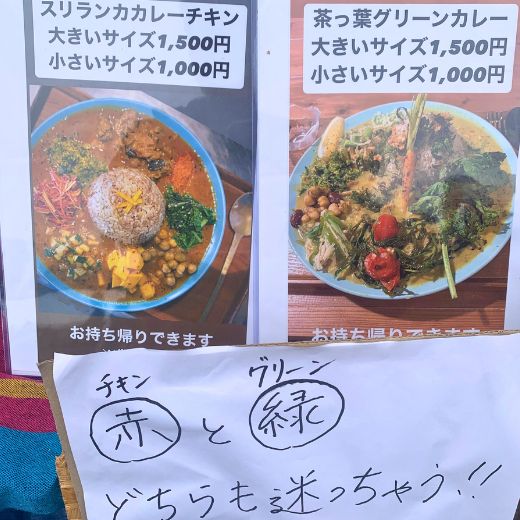 スリランカカレーチキン
大きいサイズ1,500円
小さいサイズ1,000円
お持ち帰りできます
茶っ葉グリーンカレー
大きいサイズ1,500円
小さいサイズ1,000円
お持ち帰りできます
チキン グリーン
赤と緑
どちらも迷っちゃう!!